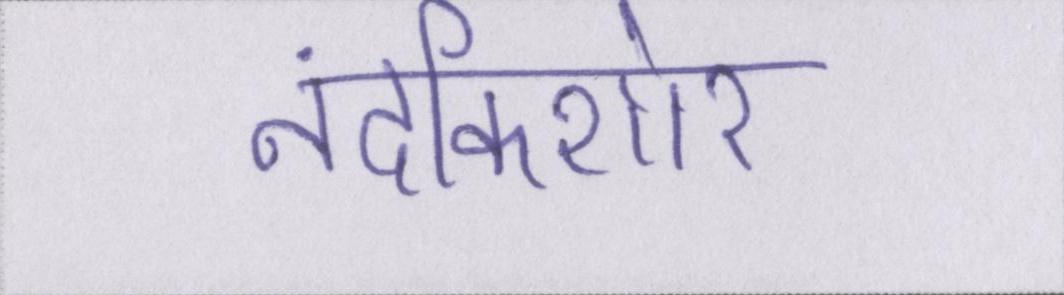 नंदकिशोर